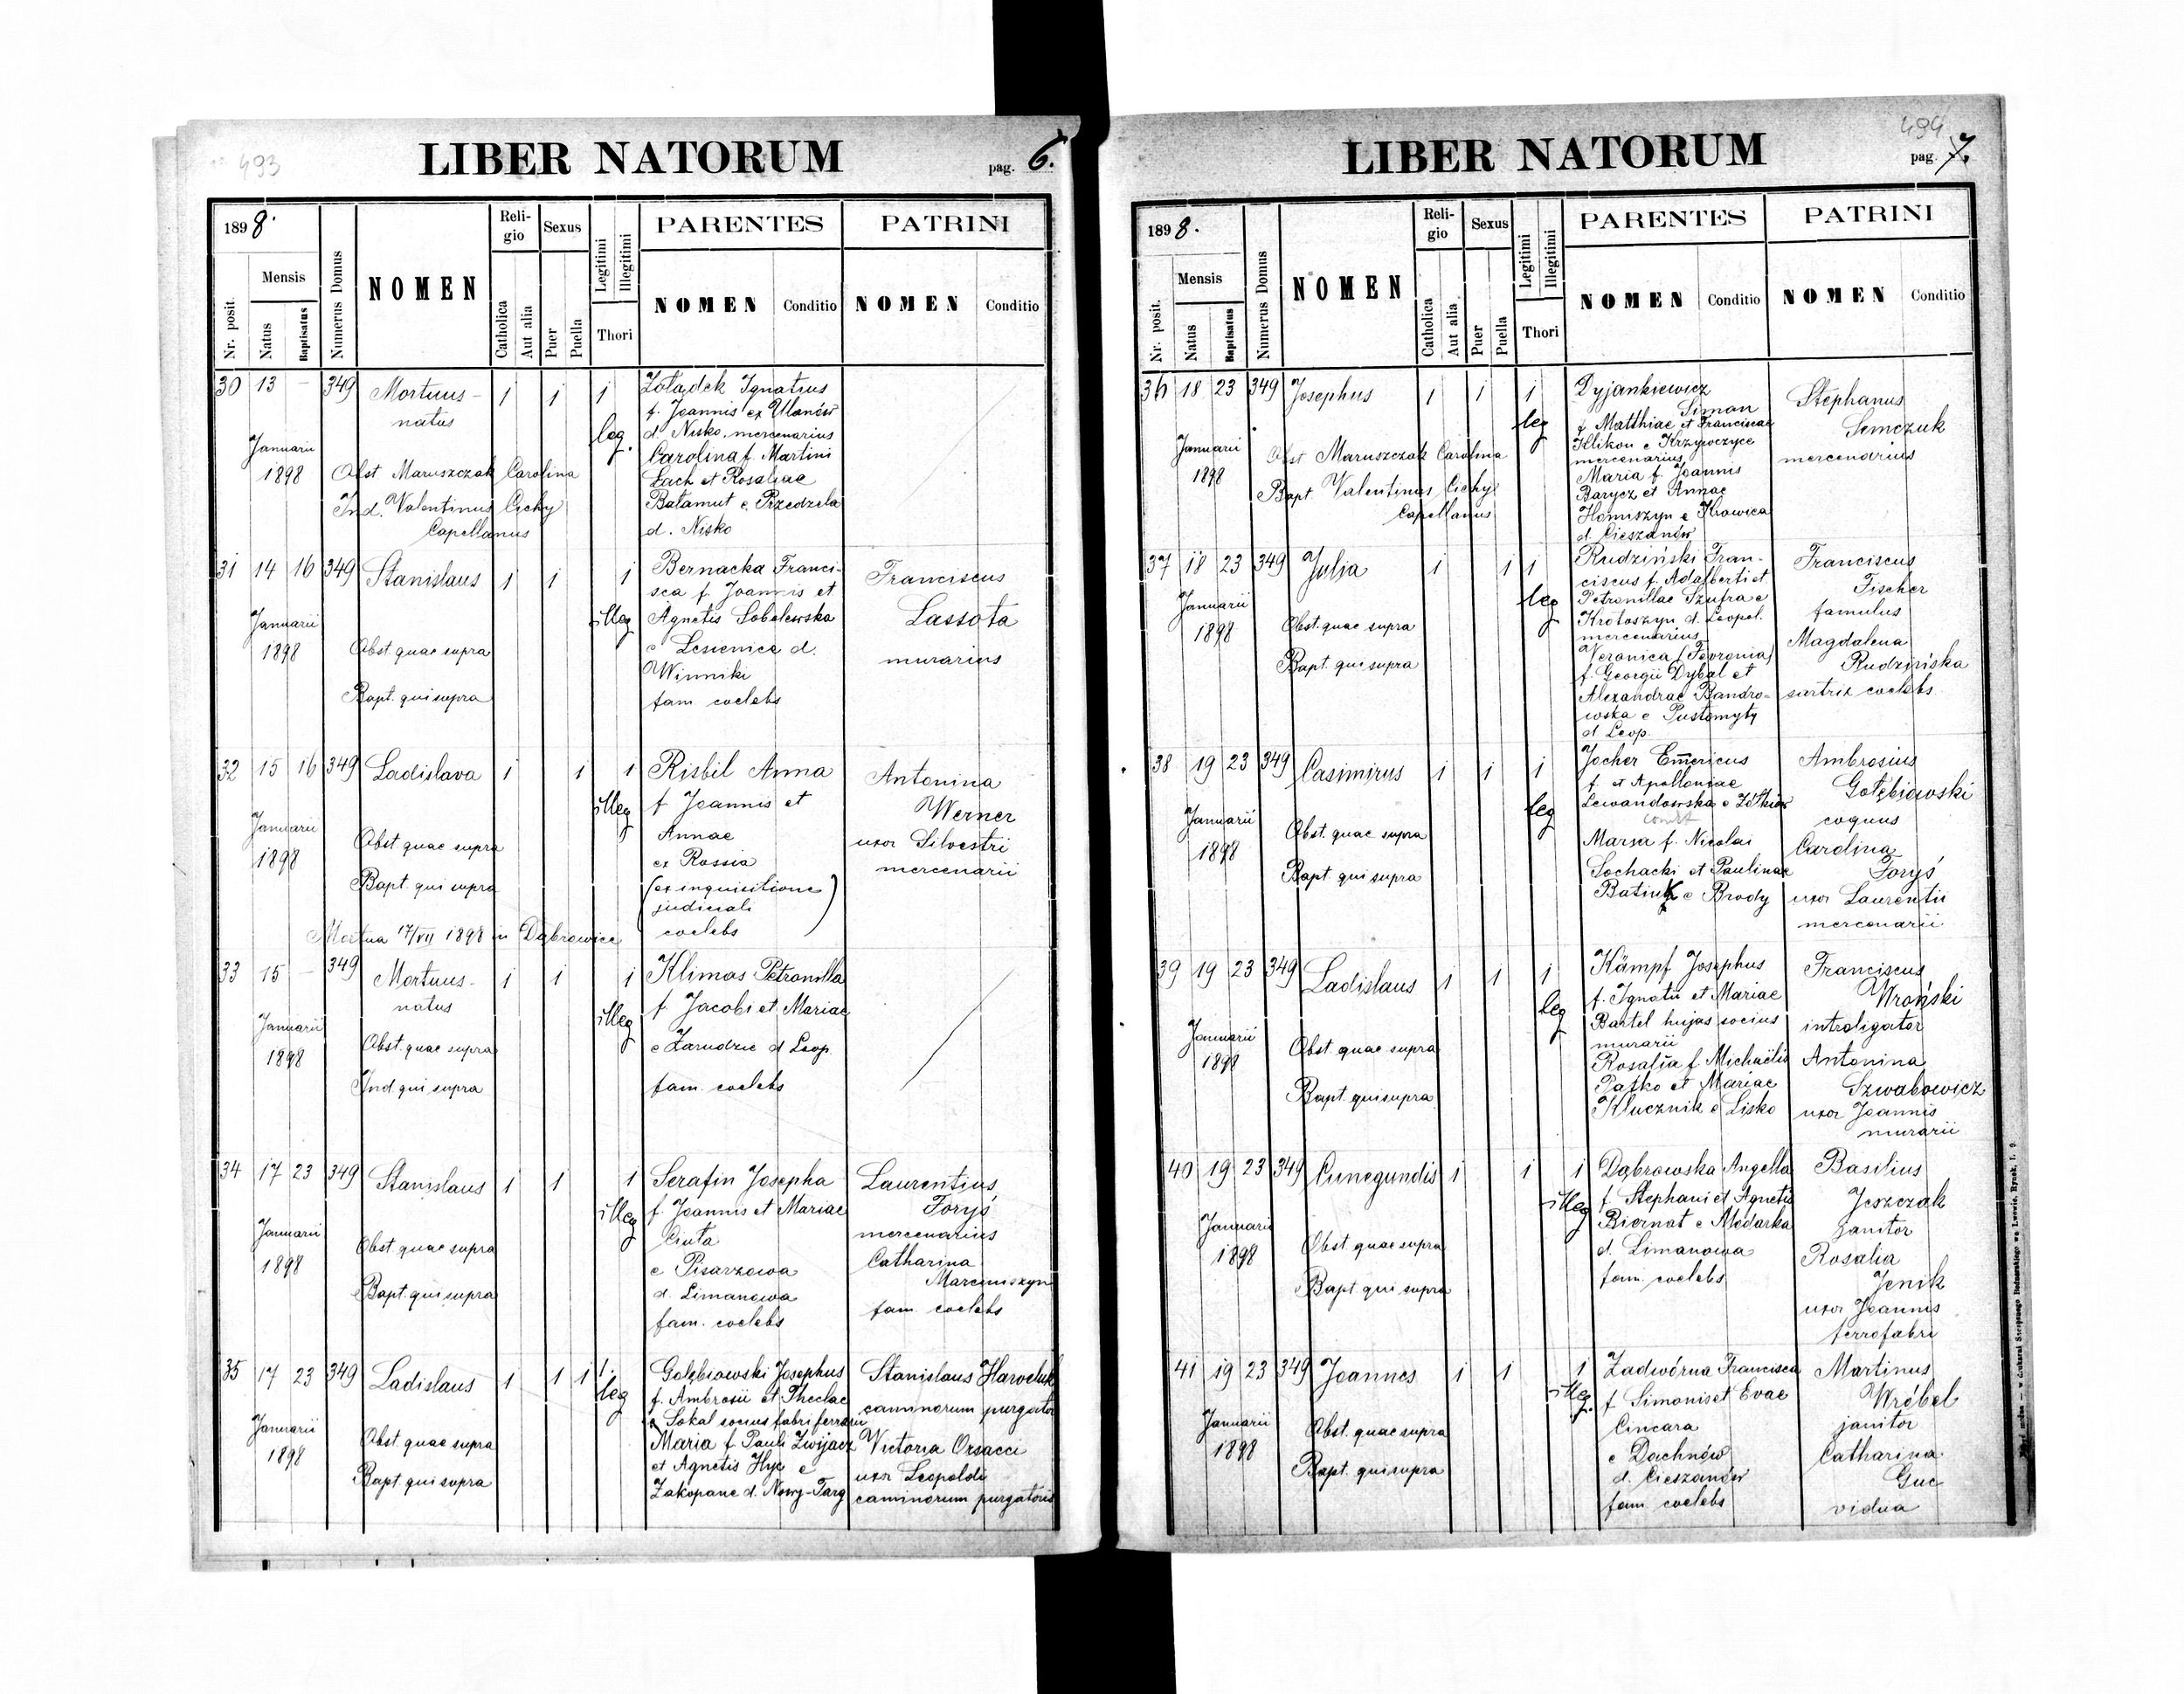 493
LIBER NATORUM
pag. 6.
1898.
Mensis
Nr. posit.
Natus
Baptisatus
Numerus Domus
NOMEN
Reli-
gio
Catholica
Aut alia
Sexus
Puer
Puella
Legitimi
Illegitimi
Thori
PARENTES
NOMEN
Conditio
PATRINI
NOMEN
Conditio
30 13 — 349 Mortuus-
natus
1 1 1
leg.
Januarii
1898
Obst Maruszczak Carolina
Ind. Valentinus Cichy
Capellanus
Żołądek Ignatius
f. Joannis ex Ulanów
d. Nisko, mercenarius
Carolina f. Martini
Łach et Rosaliae
Bałamut e Przedzela
d. Nisko
31 14 16 349 Stanislaus 1 1 1
illeg
Januarii
1898
Obst quae supra
Bapt. qui supra
Bernacka Franci-
sca f. Joannis et
Agnetis Sobolewska
e Lesienice d.
Winniki
fam coelebs
Franciscus
Lassota
murarius
32 15 16 349 Ladislava 1 1 1
illeg
Januarii
1898
Obst quae supra
Bapt. qui supra
Mortua 17/VII 1898 in Dąbrowice
Risbil Anna
f Joannis et
Annae
ex Rossia
(ex inquisitione
judiciali)
coelebs
Antonina
Werner
uxor Silvestri
mercenarii
33 15 — 349 Mortuus-
natus
1 1 1
illeg
Januarii
1898
Obst. quae supra
Ind qui supra
Klimas Petronilla
f Jacobi et Mariae
e Zarudzie d Leop
fam. coelebs
34 17 23 349 Stanislaus 1 1 1
illeg
Januarii
1898
Obst. quae supra
Bapt. qui supra
Serafin Josepha
f. Joannis et Mariae
Ciuta
e Pisarzowa
d. Limanowa
fam. coelebs
Laurentius
Foryś
mercenarius
Catharina
Marceniszyn
fam. coelebs
35 17 23 349 Ladislaus 1 1 1 1.
leg
Januarii
1898
Obst. quae supra
Bapt. qui supra
Gołębiowski Josephus
f. Ambrosii et Theclae
e Sokal socius fabri ferrarii
Maria f Pauli Zwijacz
et Agnetis Hyc e
Zakopane d. Nowy-Targ
Stanislaus
caminorum purgator
Victoria Orsacci
uxor Leopoldi
caminorum purgatoris
494
LIBER NATORUM
pag. 7.
1898.
Mensis
Nr. posit.
Natus
Baptisatus
Numerus Domus
NOMEN
Reli-
gio
Catholica
Aut alia
Sexus
Puer
Puella
Legitimi
Illegitimi
Thori
PARENTES
NOMEN
Conditio
PATRINI
NOMEN
Conditio
36 18 23 349 Josephus 1 1 1
leg
Januarii
1898
Obst Maruszczak Carolina
Bapt Valentinus Cichy
Capellanus
Dyjankiewicz
Simon
f Matthiae et Franciscae
Klikon e Krzywczyce
mercenarius
Maria f. Joannis
Barycz et Annae
Homiszyn e Krowica
d. Cieszanów
Stephanus
Semczuk
mercenarius
37 18 23 349 Julia 1 1 1
leg
Januarii
1898
Obst. quae supra
Bapt. qui supra
Rudziński Fran-
ciscus f. Adalberti et
Petronillae Szufra e
Krotoszyn d. Leopol.
mercenarius
Veronica (Fevronia)
f. Georgii Dybal et
Alexandrae Bandro-
wska e Pustomyty
d Leop.
Franciscus
Fischer
famulus
Magdalena
Rudzińska
sartrix coelebs
38 19 23 349 Casimirus 1 1 1
leg
Januarii
1898
Obst. quae supra
Bapt qui supra
Jocher Em̄ericus
f. et Apolloniae
Lewandowska e Żółkiew
Maria f. Nicolai
Sochacki et Paulinae
Batiuk e Brody
Ambrosius
Gołębiowski
coquus
Carolina
Foryś
uxor Laurentii
mercenarii
39 19 23 349 Ladislaus 1 1 1
leg
Januarii
1898
Obst. quae supra
Bapt. qui supra
Kämpf Josephus
f. Ignatii et Mariae
Bartel hujas socius
murarii
Rosalia f. Michaëlis
Patko et Mariae
Klucznik e Lisko
Franciscus
Wroński
introligator
Antonina
Szwabowicz
uxor Joannis
murarii
40 19 23 349 Cunegundis 1 1 1
illeg
Januarii
1898
Obst. quae supra
Bapt. qui supra
Dąbrowska Angella
f Stephani et Agnetis
Biernat e Mordarka
d. Limanowa
fam. coelebs
Basilius
Jeszczak
janitor
Rosalia
Jenik
uxor Joannis
ferrofabri
41 19 23 349 Joannes 1 1 1
illeg.
Januarii
1898
Obst. quae supra
Bapt. qui supra
Zadwórna Francisca
f Simonis et Evae
Cincara
e Dachnów
d. Cieszanów
fam coelebs
Martinus
Wróbel
janitor
Catharina
Guc
vidua